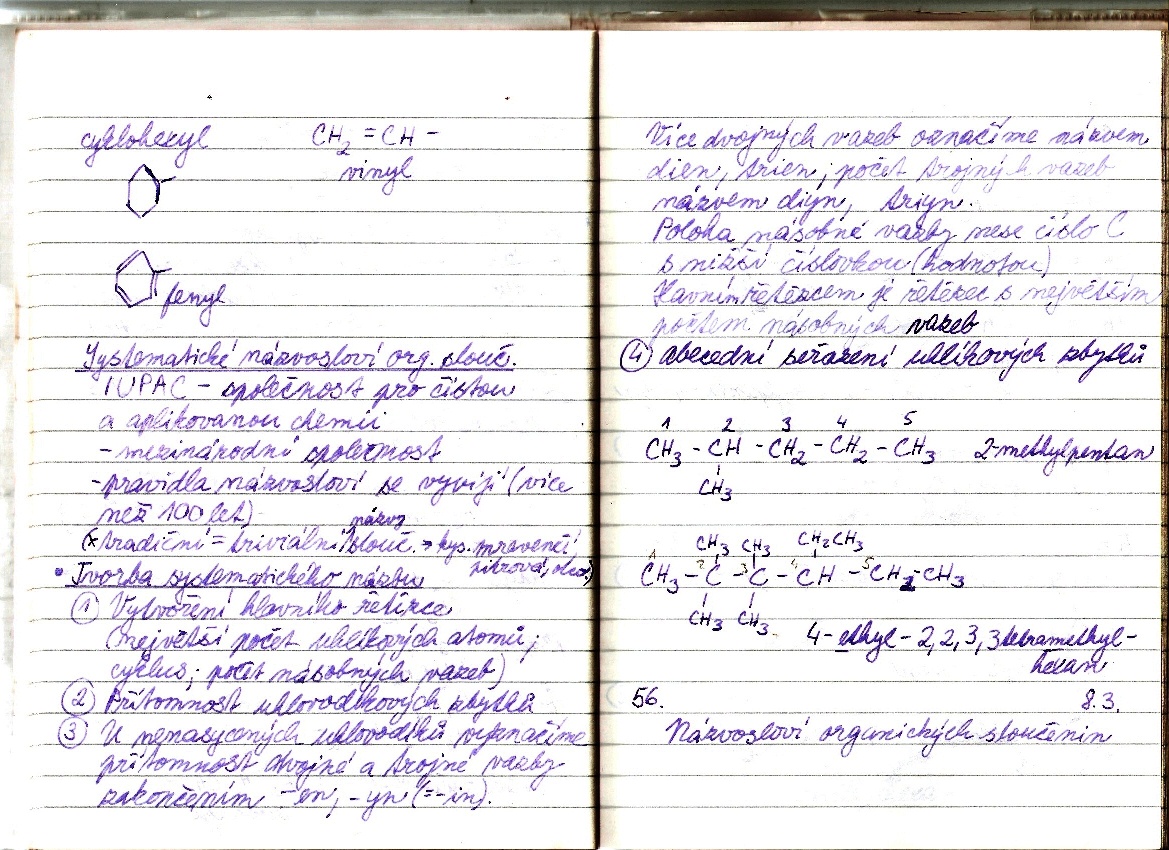 cyklohexyl CH2 = CH -
vinyl
fenyl
Systematické názvosloví org. slouč.
IUPAC - společnost pro čistou
a aplikovanou chemii
- mezinárodní společnost
- pravidla názvosloví se vyvíjí (více
než 100 let)
názvy
(x tradiční = triviální slouč. → kys. mravenčí,
citrónová, octová)
• Tvorba systematického názvu
① Vytvoření hlavního řetězce
(největší počet uhlíkových atomů;
cyklus; počet násobných vazeb)
② Přítomnost uhlovodíkových zbytků
③ U nenasycených uhlovodíků vyznačíme
přítomnost dvojné a trojné vazby
zakončením -en, -yn (=-in).
Více dvojných vazeb označíme názvem
dien, trien; počet trojných vazeb
názvem diyn, triyn.
Poloha násobné vazby nese číslo C
s nižší číslovkou (hodnotou)
Hlavním řetězcem je řetězec s největším
počtem násobných vazeb
④ abecední seřazení uhlíkových zbytků
1 2 3 4 5
CH3 - CH - CH2 - CH2 - CH3 2-methylpentan
CH3
CH3 CH3 CH2CH3
1 2 3 4 5
CH3 - C - C - CH - CH2 - CH3
CH3 CH3
4-ethyl-2,2,3,3tetramethyl-
hexan
56. 8.3.
Názvosloví organických sloučenin